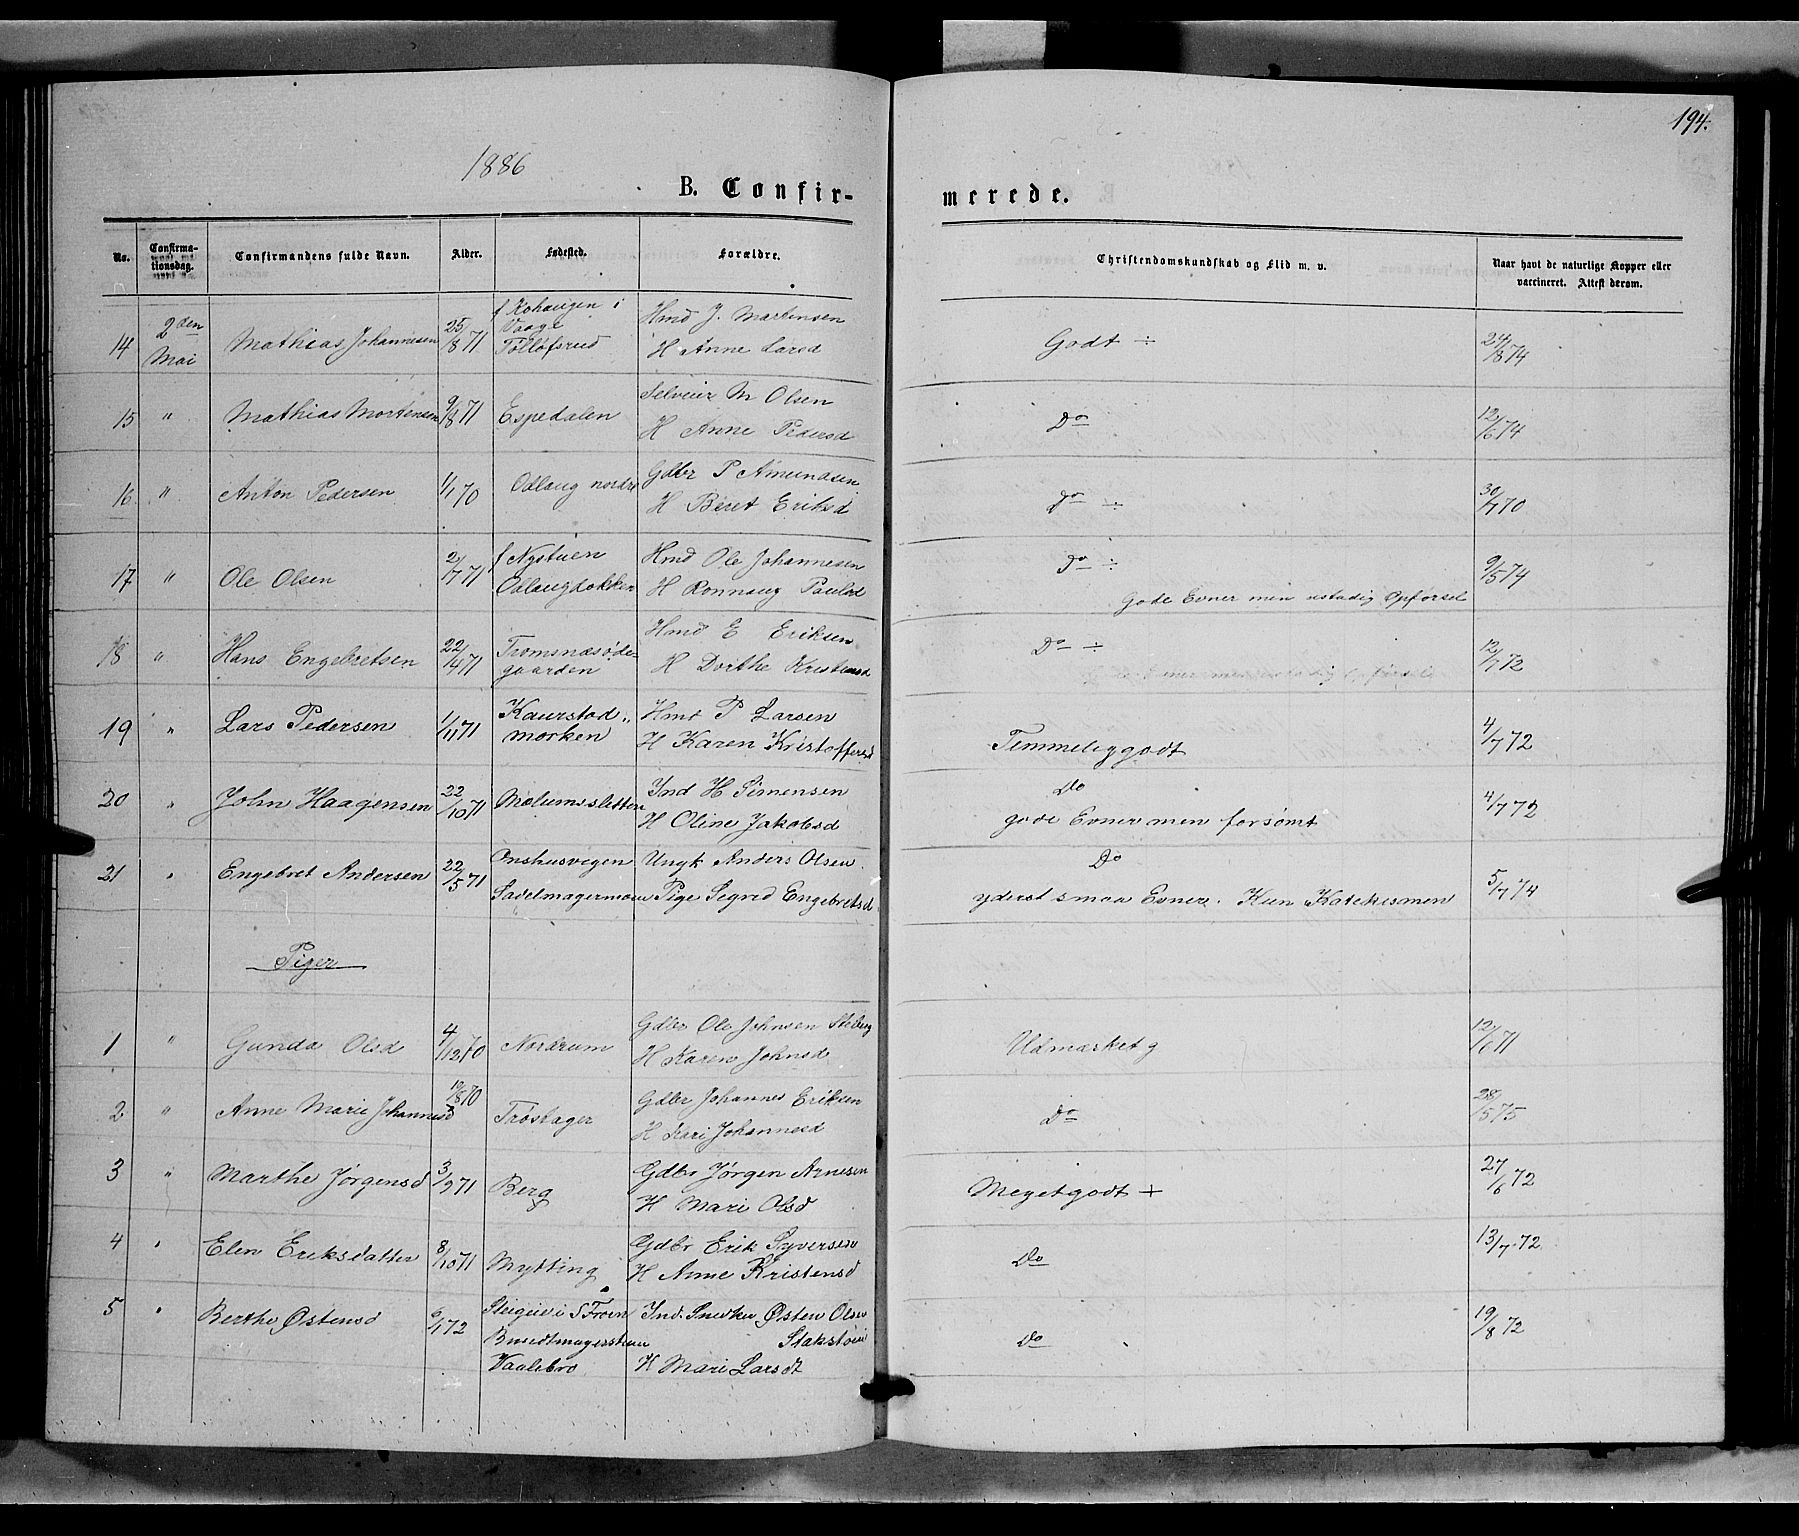 194.
1886
B. Confirmerede.
No. Confirmationsdag. Confirmandens fulde Navn. Alder. Fødested. Forældre. Christendomskundskab og Flid m. v. Naar havt de naturlige Kopper eller vaccineret. Attest derom.
14 2den Mai Mathias Johannesen 25/8 71 f Kohaugen i Vaage Tollöfsrud Hmd J. Martensen H Anne Larsd Godt ÷ 24/8 74
15 " Mathias Mortensen 9/8 71 Espedalen Selveier M Olsen H Anne Pedersd Do 12/6 74
16 " Anton Pedersen 1/1 70 Odlaug nordre Gdbr P Amundsen H Beret Eriksd do ÷ 30/7 70
17 " Ole Olsen 2/7 71 f Nystuen Odlaugdokken Hmd Ole Johannesen H Ronnaug Paulsd do ÷ Gode Evner men ustadig Opførsel 9/5 74
18 " Hans Engebretsen 22/4 71 Tromsnæsødegaarden Hmd E Eriksen H Dorthe Kristensd Do ÷ 12/7 72
19 " Lars Pedersen 1/11 71 Kaurstadmorken Hmd P Larsen H Karen Kristoffersd Temmelig godt 4/7 72
20 " John Haagensen 22/10 71 Moliumssletten Ind H Simensen H Oline Jakobsd Do gode Evner men forsømt 4/7 72
21 " Engebret Andersen 22/5 71 Onshusvegen Sadelmagermoen Ungk Anders Olsen Pige Segred Engebretsd Do yderst smaa Evner. Kun Katekismen 5/7 74
Piger
1 " Gunda Olsd 4/12 70 Nordrum Gdbr Ole Johnsen Steberg H Karen Johnsd Udmærket g 12/6 71
2 " Anne Marie Johannesd 19/8 70 Trøstager Gdbr Johannes Eriksen H Kari Johannesd Do 28/5 75
3 " Marthe Jørgensd 3/9 71 Berg Gdbr Jørgen Arnesen H Mari Olsd Meget godt + 27/6 72
4 " Elen Eriksdatter 8/10 71 Mytting Gdbr Erik Syversen H Anne Kristensd Do 13/7 72
5 " Berthe Østensd 6/1 72 i S Froen Vaalebro Ind. Snedker Østen Olsen H Mari Larsdt Do 19/8 72